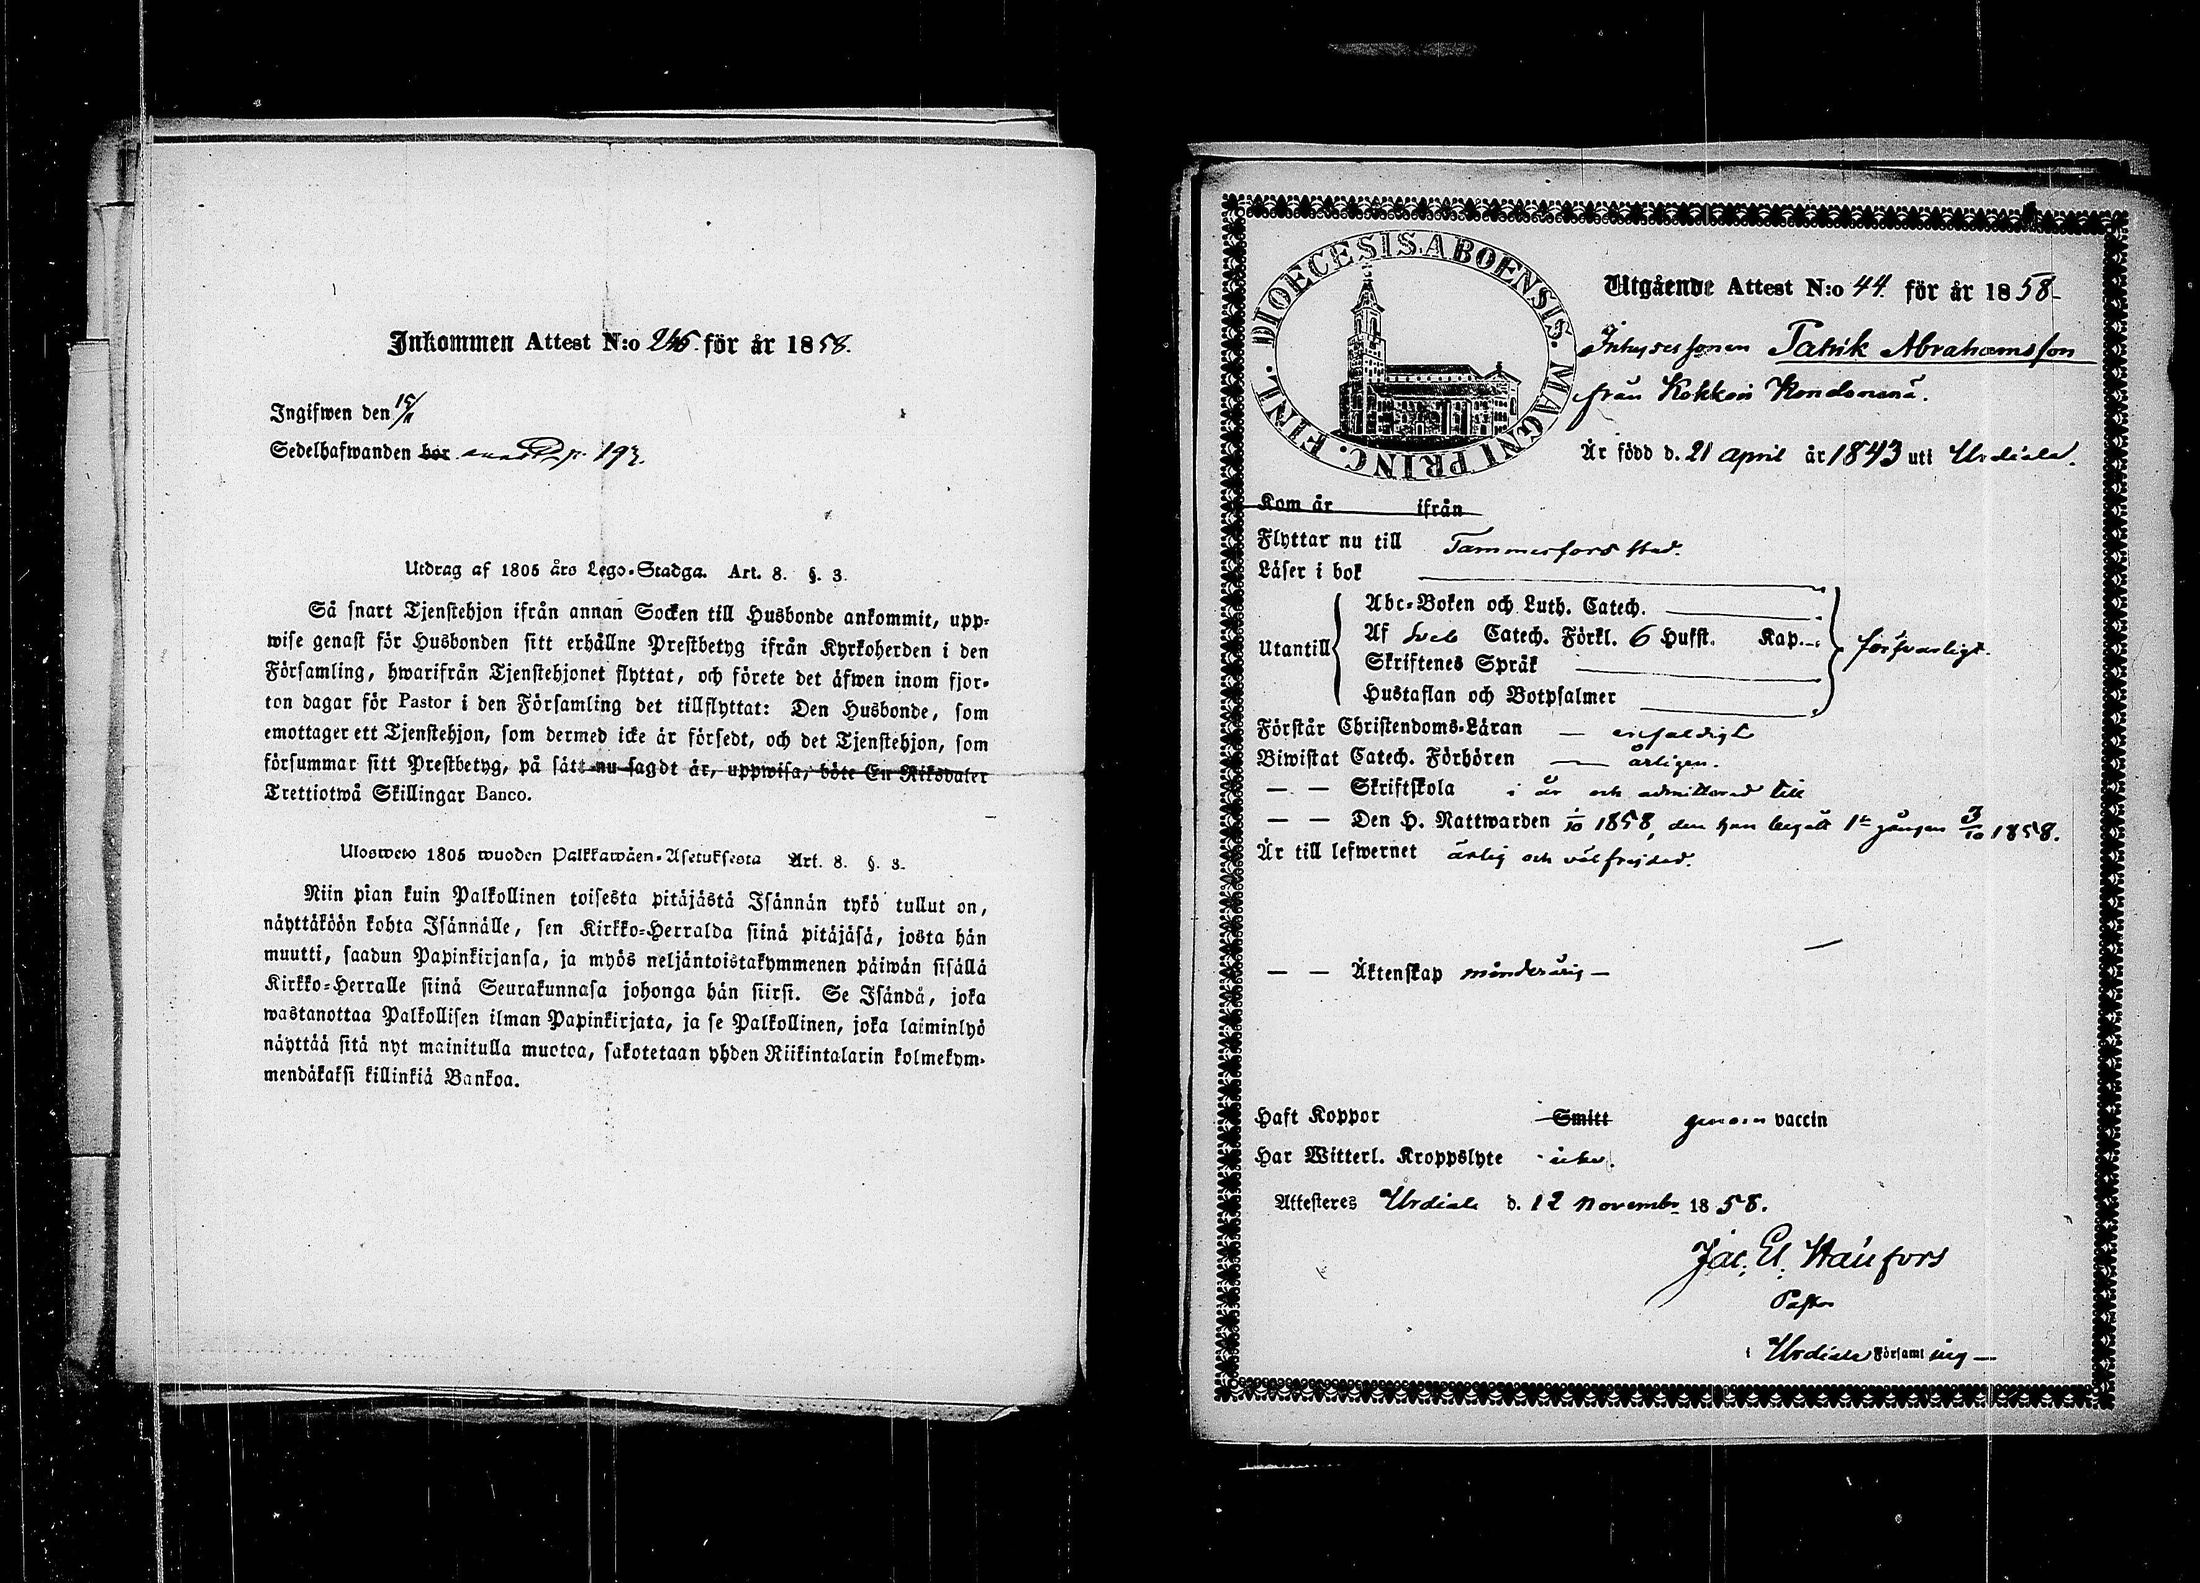 Inkommen Attest N:o 246. för år 1858.
Ingifwen den 15/11
Sedelhafwanden bor p. 193.
Utdrag af 1805 års Lego-Stadga. Art. 8. §. 3.
Så snart Tjenstehjon ifrån annan Socken till Husbonde ankommit, upp-
wise genast för Husbonden sitt erhållne Prestbetyg ifrån Kyrkoherden i den
Församling, hwarifrån Tjenstehjonet flyttat, och förete det äfwen inom fjor-
ton dagar för Pastor i den Församling det tillflyttat: Den Husbonde, som
emottager ett Tjenstehjon, som dermed icke är försedt, och det Tjenstehjon, som
försummar sitt Prestbetyg, på sätt nu sagdt är, uppwisa, böte En Riksdaler
Trettiotwå Skillingar Banco.
Ulosweto 1805 wuoden Palkkawäen-Asetuksesta Art. 8. §. 3.
Niin pian kuin Palkollinen toisesta pitäjästä Isännän tykö tullut on,
näyttäköön kohta Isännälle, sen Kirkko-Herralda siinä pitäjäsä, josta hän
muutti, saadun Papinkirjansa, ja myös neljäntoistakymmenen päiwän sisällä
Kirkko-Herralle siinä Seurakunnasa johonga hän siirsi. Se Isändä, joka
wastanottaa Palkollisen ilman Papinkirjata, ja se Palkollinen, joka laiminlyö
näyttää sitä nyt mainitulla muotoa, sakotetaan yhden Riikintalarin kolmekym-
mendäkaksi killinkiä Bankoa.
DIOECESIS ABOENSIS. MAGNI PRINC. FINL.
Utgående Attest N:o 44. för år 1858-
Inhysessonen Patrik Abrahamsson
från Kokkoi
Är född d. 21 april år 1843 uti Urdiala.
Kom år ifrån
Flyttar nu till Tammerfors stad.
Läser i bok
Abc-Boken och Luth. Catech.
Utantill Af Sveb Catech. Förkl. 6 Hufst. Kap. försvarligt.
Skriftenes Språk
Hustaflan och Botpsalmer
Förstår Christendoms-Läran — enfaldigt
Biwistat Catech. Förhören — årligen.
— — Skriftskola i år och admitterad till
— — Den H. Nattwarden 1/10 1858, den han begått 1a gången 3/10 1858.
Är till lefwernet ärlig och välfrejdad.
— — Äktenskap minderårig —
Haft Koppor Smitt genom vaccin
Har Witterl. Kroppslyte icke.
Attesteres Urdiala d. 12 november 1858.
Jac. El.
Pastor
i Urdiala Församling —